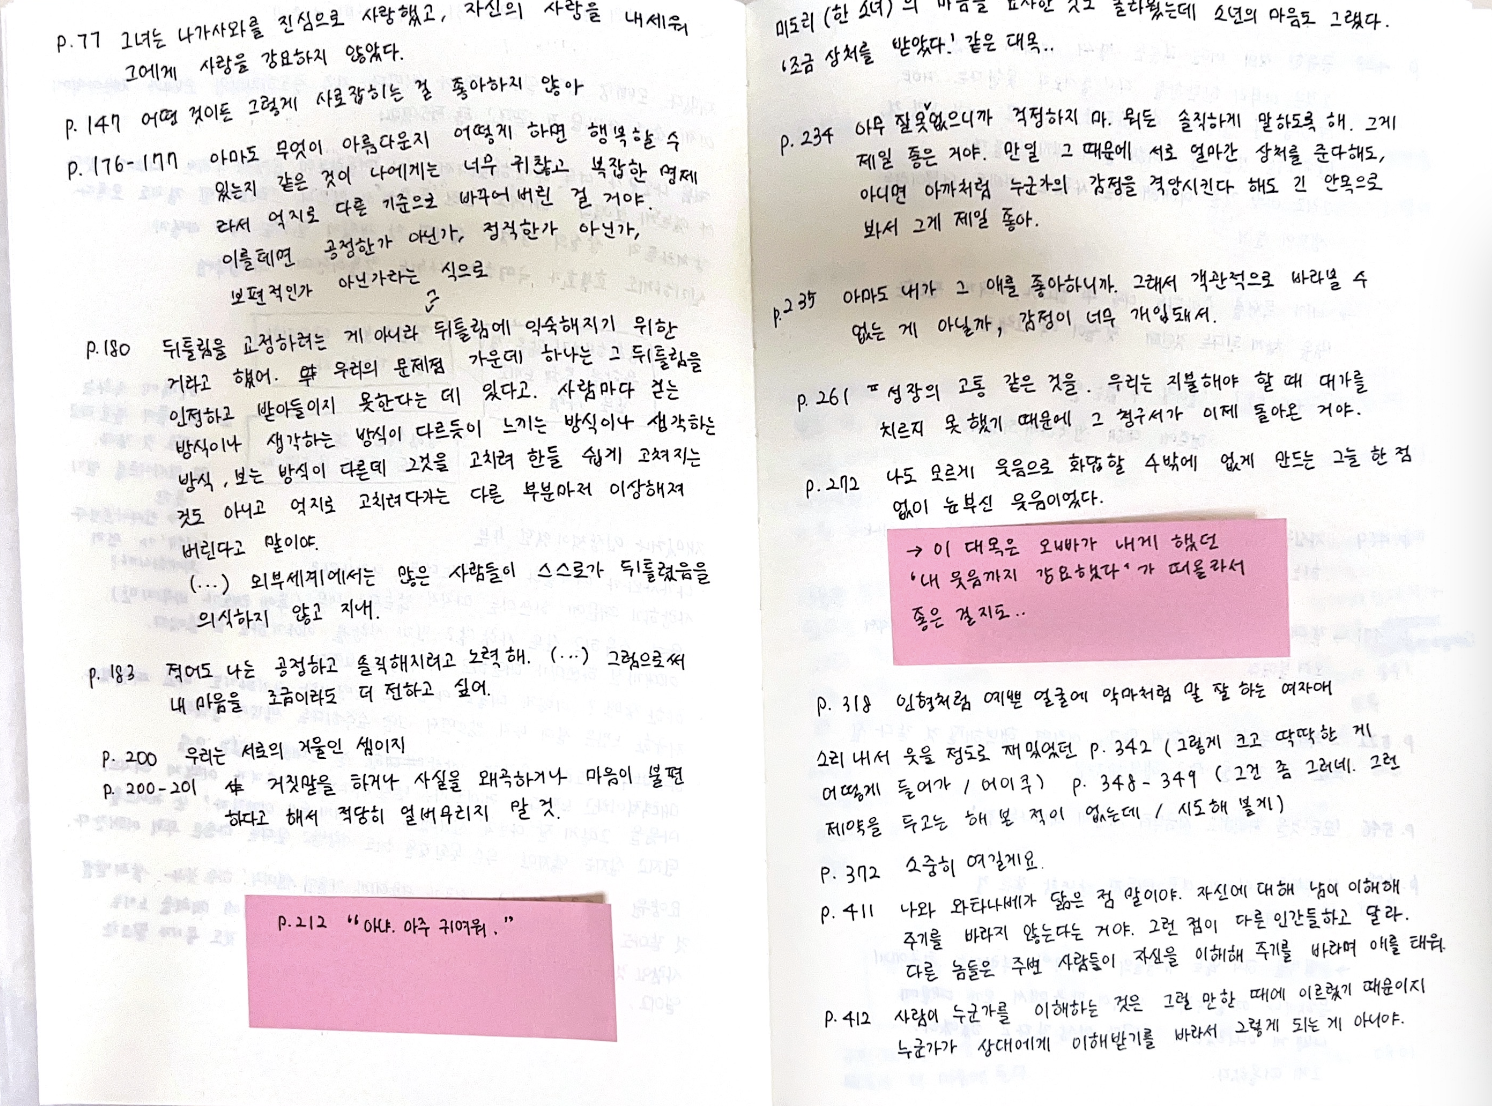 p.77 그녀는 나가사와를 진심으로 사랑했고, 자신의 사랑을 내세워
그에게 사랑을 강요하지 않았다.
p.147 어떤 것이든 그렇게 사로잡히는 걸 좋아하지 않아
p.176-177 아마도 무엇이 아름다운지 어떻게 하면 행복할 수
있는지 같은 것이 나에게는 너무 귀찮고 복잡한 명제
라서 억지로 다른 기준으로 바꾸어 버린 걸 거야.
이를테면 공정한가 아닌가, 정직한가 아닌가,
보편적인가 아닌가라는 식으로
p.180 뒤틀림을 교정하려는 게 아니라 뒤틀림에 익숙해지기 위한
거라고 했어. 우리의 문제점 가운데 하나는 그 뒤틀림을
인정하고 받아들이지 못한다는 데 있다고. 사람마다 걷는
방식이나 생각하는 방식이 다르듯이 느끼는 방식이나 생각하는
방식, 보는 방식이 다른데 그것을 고치려 한들 쉽게 고쳐지는
것도 아니고 억지로 고치려다가는 다른 부분마저 이상해져
버린다고 말이야.
(...) 외부세계에서는 많은 사람들이 스스로가 뒤틀렸음을
의식하지 않고 지내.
p.183 적어도 나는 공정하고 솔직해지려고 노력해. (...) 그럼으로써
내 마음을 조금이라도 더 전하고 싶어.
p.200 우리는 서로의 거울인 셈이지
p.200-201 거짓말을 하거나 사실을 왜곡하거나 마음이 불편
하다고 해서 적당히 얼버무리지 말 것.
p.212 "아냐. 아주 귀여워."
미도리 (한 소녀)의 마음을 묘사한 것도 놀라웠는데 소년의 마음도 그랬다.
'조금 상처를 받았다!' 같은 대목..
p.234 아무 잘못 없으니까 걱정하지 마. 뭐든 솔직하게 말하도록 해. 그게
제일 좋은 거야. 만일 그 때문에 서로 얼마간 상처를 준다해도,
아니면 아까처럼 누군가의 감정을 격앙시킨다 해도 긴 안목으로
봐서 그게 제일 좋아.
p.235 아마도 내가 그 애를 좋아하니까. 그래서 객관적으로 바라볼 수
없는 게 아닐까, 감정이 너무 개입돼서.
p.261 "성장의 고통 같은 것을. 우리는 지불해야 할 때 대가를
치르지 못했기 때문에 그 청구서가 이제 돌아온 거야.
p.272 나도 모르게 웃음으로 화답할 수밖에 없게 만드는 그늘 한 점
없이 눈부신 웃음이었다.
→ 이 대목은 오빠가 내게 했던
'내 웃음까지 강요했다'가 떠올라서
좋은 걸지도..
p.318 인형처럼 예쁜 얼굴에 악마처럼 말 잘 하는 여자애
소리 내서 웃을 정도로 재밌었던 p.342 (그렇게 크고 딱딱한 게
어떻게 들어가 / 어이쿠) p.348-349 (그건 좀 그러네. 그런
제약을 두고는 해 본 적이 없는데 / 시도해 볼게)
p.372 소중히 여길게요.
p.411 나와 와타나베가 닮은 점 말이야. 자신에 대해 남이 이해해
주기를 바라지 않는다는 거야. 그런 점이 다른 인간들하고 달라.
다른 놈들은 주변 사람들이 자신을 이해해 주기를 바라며 애를 태워.
p.412 사람이 누군가를 이해하는 것은 그럴 만한 때에 이르렀기 때문이지
누군가가 상대에게 이해받기를 바라서 그렇게 되는 게 아니야.